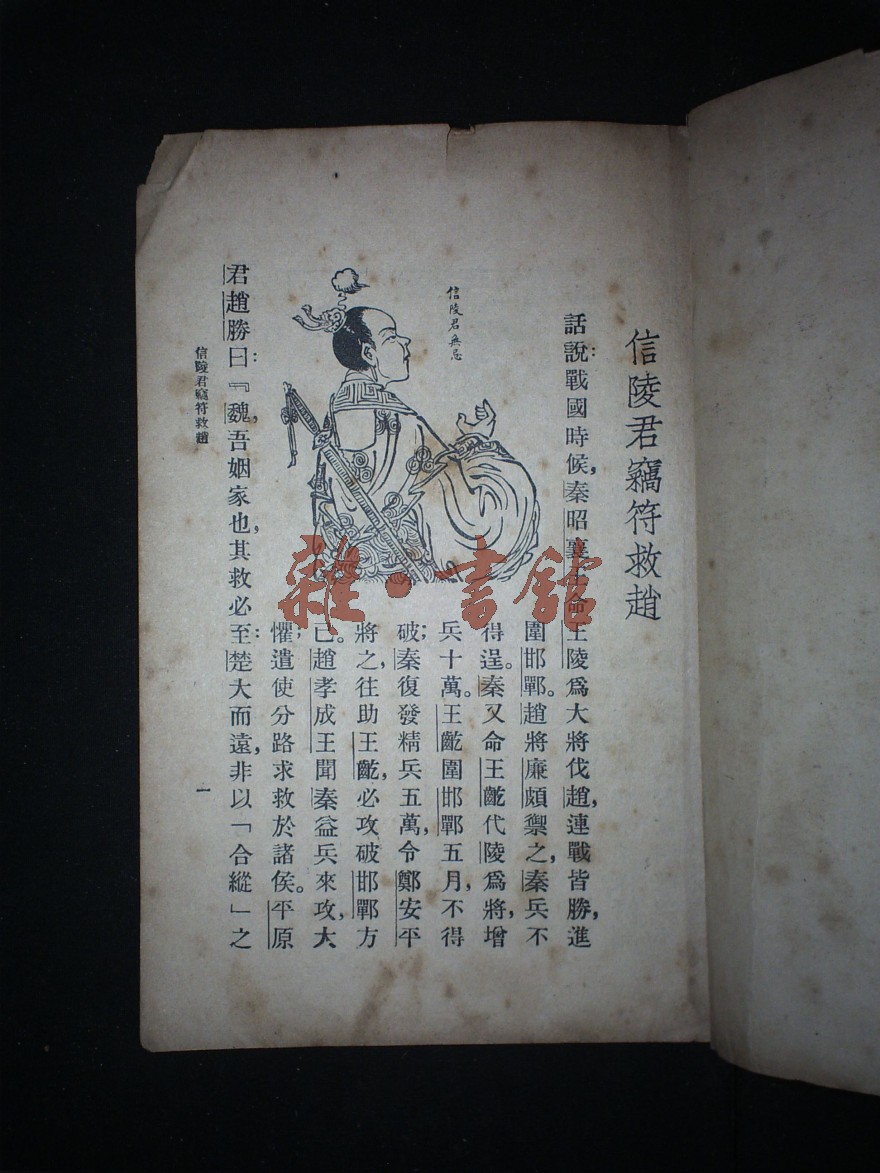 信陵君竊符救趙
話說：戰國時候，秦昭襄王命王陵爲大將伐趙，連戰皆勝，進
圍邯鄲。趙將廉頗禦之，秦兵不
得逞。秦又命王齕代陵爲將，增
兵十萬。王齕圍邯鄲五月，不得
破；秦復發精兵五萬，令鄭安平
將之，往助王齕，必攻破邯鄲方
已。趙孝成王聞秦益兵來攻，大
懼；遣使分路求救於諸侯。平原
君趙勝曰：『魏，吾姻家也，其救必至：楚大而遠，非以「合縱」之
信陵君無忌
信陵君竊符救趙
一
雜·書館